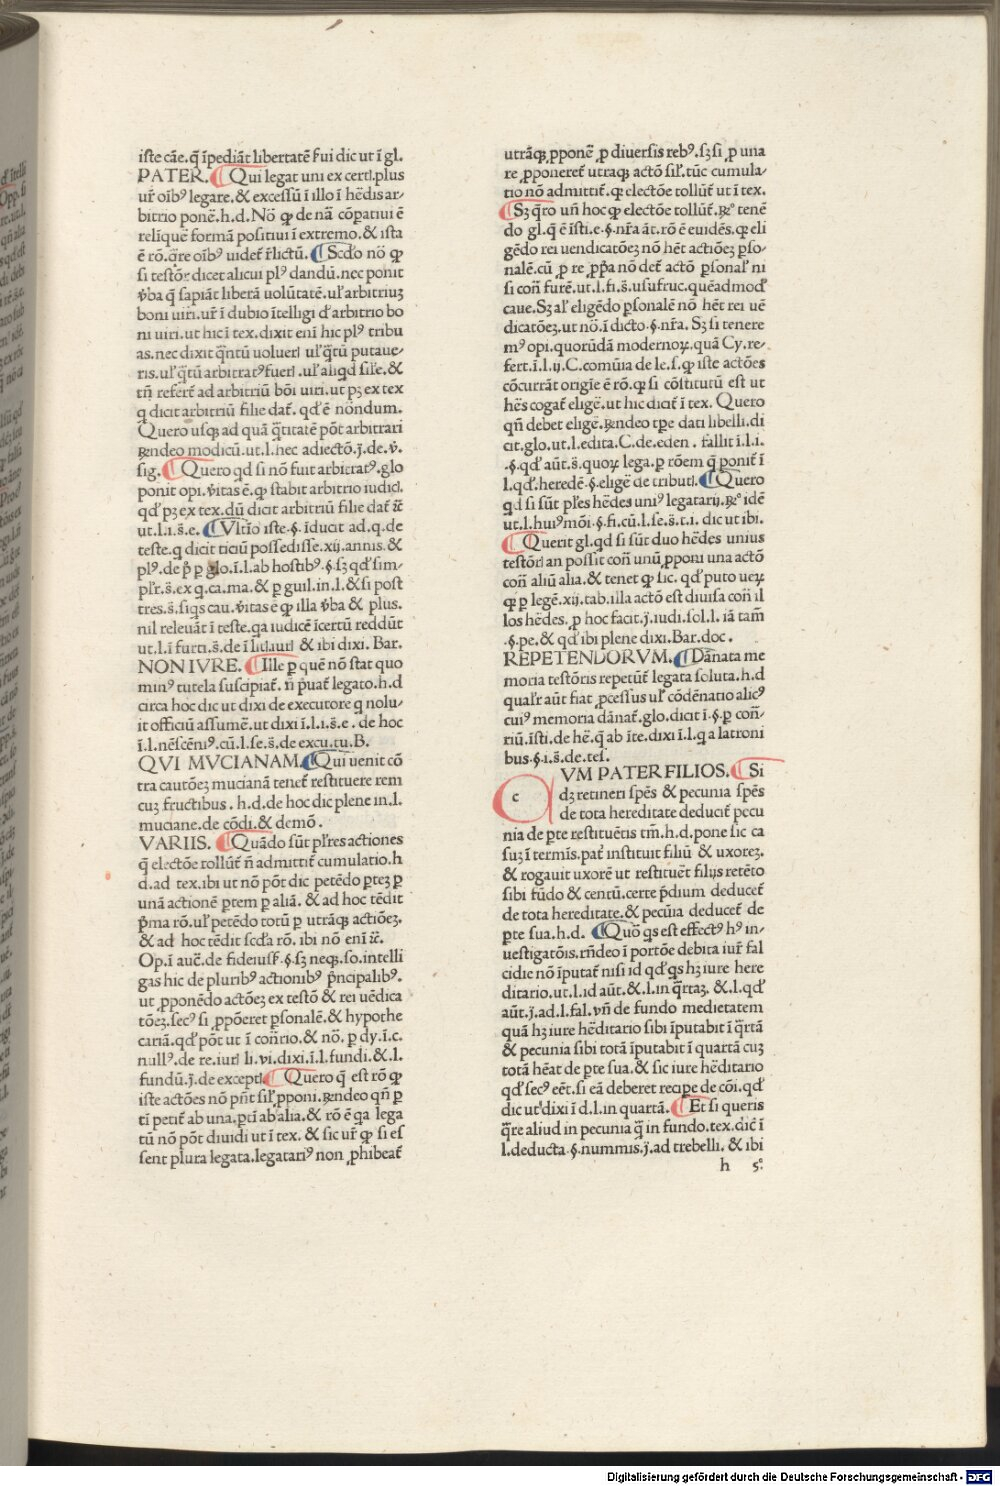 iste cāe.q̄ īpediāt libertatē sui dic ut ī gl.
PATER. ¶ Qui legat uni ex certl.plus
ur̄ oībꝰ legare.& excessū ī illo ī hēdis ar-
bitrio ponē.h.d. Nō ꝙ de nā cōpatiui ē
reliq̄ue formā positiui ī extremo.& ista
ē rō.q̄re oībꝰ uidet̄ r̄lictū. ¶ Scd̄o nō ꝙ
si testōr dicet alicui plꝰ dandū.nec ponit
v̄ba q̄ sapiāt liberā uolūtatē.ul̄ arbitriuꝫ
boni uiri.ur̄ ī dubio ītelligi d̄ arbitrio bo
ni uiri.ut hic ī tex.dixit enī hic plꝰ tribu
as.nec dixit q̄ntū uoluerl ul̄ q̄tū putaue-
ris.ul̄ q̄tū arbitratꝰ fuerl .ul̄ aliqd sil̄e.&
tn̄ refert̄ ad arbitriū bōi uiri.ut pꝫ ex tex
q dicit arbitriū filie dat̄. qd̄ ē nōndum.
Quero usqꝫ ad quā q̄titatē pōt arbitrari
Rn̄deo modicū.ut.l.nec adiectō.j̄.de.v̄.
sig. ¶ Quero qd si nō fuit arbitratꝰ.glo
ponit opi.v̄itas ē.ꝙ stabit arbitrio iudicl.
qd̄ pꝫ ex tex.dū dicit arbitriū filie dat̄ īc̄
ut.l.i.s̄.e. ¶ Vltīo iste.§.īducit ad.q.de
teste.q dicit ticiū possedisse.xij.annis.&
plꝰ.de p̄ p glo.ī.l.ab hostibꝰ.§.sꝫ qd̄ sim-
pl̄r.s̄.ex q.ca.ma.& p guil.in.l.&si post
tres.s̄.siqs cau.v̄itas ē ꝙ illa v̄ba & plus.
nil releuāt ī teste.qa iudicē īcertū reddūt
ut.l.ī furti.s̄.de ī lidiurl & ibi dixi. Bar.
NON IVRE. ¶ Ille p quē nō stat quo
minꝰ tutela suscipiat̄. n̄ p̄uat̄ legato.h.d
circa hoc dic ut dixi de executore q nolu-
it officiū assumē.ut dixi ī.l.i.s̄.e . de hoc
ī.l.nēscēniꝰ.cū.l.se.s̄.de excu.tu.B.
QVI MVCIANAM. ¶ Qui uenit cō
tra cautōeꝫ mucianā tenet̄ restituere rem
cuꝫ fructibus . h.d.de hoc dic plene in.l.
muciane.de cōdi.& demō .
VARIIS. ¶ Quādo sūt pl̄res actiones
q̄ electōe tollūt̄ n̄ admittit̄ cumulatio.h
d.ad tex.ibi ut nō pōt dic petēdo pteꝫ p
unā actionē ptem p aliā. & ad hoc tēdit
p̄ma rō.ul̄ petēdo totū p utrāqꝫ actiōeꝫ.
& ad hoc tēdit scd̄a rō. ibi nō enī īc̄.
Op.ī aue̅.de fideiuss̄.§.sꝫ neqꝫ.so.intelli
gas hic de pluribꝰ actionibꝰ p̄ncipalibꝰ.
ut ꝓponēdo actōeꝫ ex testō & rei uēdica
tōeꝫ.secꝰ si ꝓpōeret psonalē.& hypothe
cariā.qd̄ pōt ut ī con̄rio.& nō. p dy.ī.c.
nullꝰ.de re.iurl li.vi.dixi.ī.l.fundi.&.l.
fundū.j̄.de exceptl. ¶ Quero q̄ est rō ꝙ
iste actōes nō pn̄t sil̄ ꝓponi.Rn̄deo qn̄ p
tī petit̄ ab una.ptī ab alia.& rō ē qa lega
tū nō pōt diuidi ut ī tex. & sic ur̄ ꝙ si es
sent plura legata.legatariꝰ non ꝓhibeat̄
utrāqꝫ ꝓponē ꝓ diuersis rebꝰ.sꝫ si ꝓ una
re ꝓponeret̄ utraqꝫ actō sil̄.tūc cumula-
tio nō admittit̄.ꝙ electōe tollūt̄ ut ī tex.
¶ Sꝫ q̄ro un̄ hoc ꝙ electōe tollūt̄.Rº tenē
do gl.q̄ ē īsti.e.§.nr̄a āt.rō ē euidēs.ꝙ eli
gēdo rei uendicatōeꝫ nō hēt actiōeꝫ pso-
nalē.cū ꝓ re ꝓp̄a nō det̄ actō psonal̄ ni
si con̄ furē.ut.l.fi.s̄.usufruc.quēadmod̄
caue. Sꝫ al̄ eligēdo psonalē nō hēt rei uē
dicatōeꝫ.ut nō.ī dicto.§.nr̄a. Sꝫ si tenere
mꝰ opi.quorūdā modernoꝝ.quā Cy.re-
fert.ī.l.ij.C.comūia de le.s.ꝙ iste actōes
cōcurrāt origīe ē rō.ꝙ si cōstitutū est ut
hēs cogat̄ eligē.ut hic dicit̄ ī tex. Quero
qn̄ debet eligē.Rn̄deo tpe dati libelli.di
cit.glo.ut.l.edita.C.de.eden . fallit ī.l.i.
.§.qd̄ aūt.s̄.quoꝝ lega.p rōem q̄ ponit̄ ī
l.qd̄.heredē.§.eligē de tributl. ¶ Quero
qd si sūt pl̄es hēdes uniꝰ legatarij.Rº idē
ut.l.huiꝰmōi.§.fi.cū.l.se.s̄.t.i. dic ut ibi.
¶ Querit gl.qd si sūt duo hēdes unius
testōrl an possit con̄ unū ꝓponi una actō
con̄ aliū alia.& tenet ꝙ sic. qd̄ puto ueꝝ
ꝙ p legē.xij.tab.illa actō est diuisa con̄ il
los hēdes. p hoc facit.j̄.iudi.sol.l. iā tam̄
.§.pe.& qd̄ ibi plene dixi.Bar.doc .
REPETENDORVM. ¶ Dānata me
moria testōris repetūt̄ legata soluta.h.d
qual̄r aūt fiat ꝓcessus ul̄ cōdēnatio alicꝰ
cuiꝰ memoria dānat̄.glo.dicit ī.§.p con̄-
riū.īsti.de hē.q̄ ab īte.dixi ī.l.q a latroni
bus.§.i.s̄.de.tes̄.
c VM PATER FILIOS. ¶ Si
dꝫ retineri spēs & pecunia spēs
de tota hereditate deducit̄ pecu
nia de pte restituētis tm̄.h.d.pone sic ca
suꝫ ī termīs.pat̄ instituit filiū & uxoreꝫ.
& rogauit uxorē ut restituēt filijs retēto
sibi fūdo & centū.certe p̄dium deducet̄
de tota hereditate.& pecūia deducet̄ de
pte sua.h.d. ¶ Quō qs est effectꝰ hꝰ in-
uestigatōis.rn̄deo ī portōe debita iur̄ fal
cidie nō īputat̄ nisi id qd̄ qs hꝫ iure here
ditario.ut.l.id aūt.&.l.in q̄rtaꝫ. &.l.qd̄
aūt.j̄.ad.l.fal.vn̄ de fundo medietatem
quā hꝫ iure hēditario sibi īputabit ī q̄rtā
& pecunia sibi totā īputabit ī quartā cuꝫ
totā hēat de pte sua.& sic iure hēditario
qd̄ secꝰ eēt.si eā deberet recipe de cōi.qd̄
dic ut dixi ī d.l.in quartā. ¶ Et si queris
q̄re aliud in pecunia q̄ in fundo.tex.dic̄ ī
l.deducta.§.nummis.j̄.ad trebelli. & ibi
h 5º
Digitalisierung gefördert durch die Deutsche Forschungsgemeinschaft - DFG